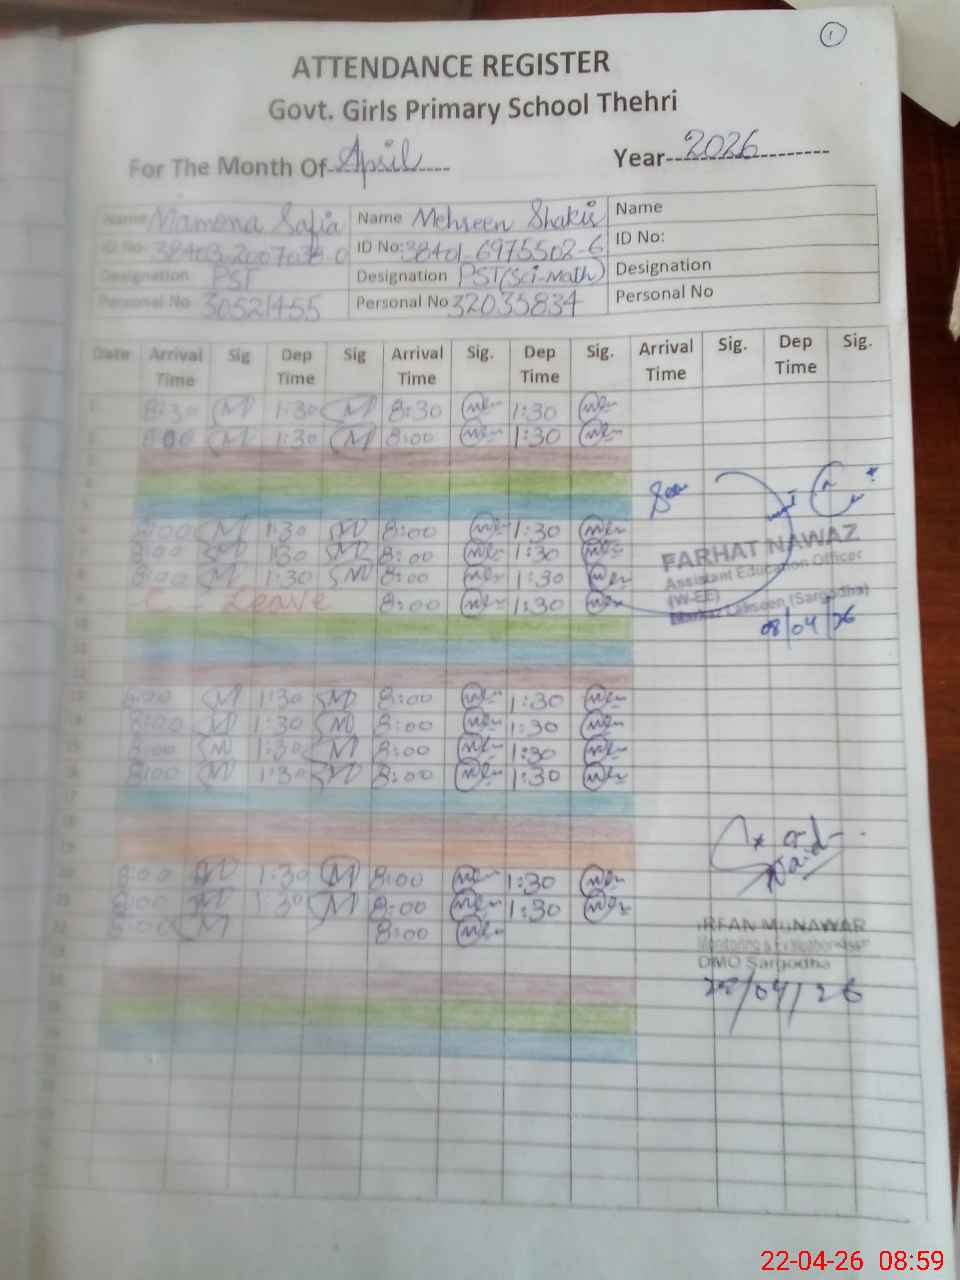 1
ATTENDANCE REGISTER
Govt. Girls Primary School Thehri
For The Month Of April
Year 2026
Name Mamona Safia Name Mehseen Shakir Name
ID No: ID No: 38401-6975502-6 ID No:
Designation PST Designation PST(Sci-Math) Designation
Personal No 30521455 Personal No 32035834 Personal No
Date Arrival Time Sig Dep Time Sig Arrival Time Sig. Dep Time Sig. Arrival Time Sig. Dep Time Sig.
8:30 M 1:30 M 8:30 1:30
8:00 M 1:30 M 8:00 1:30
Seen
8:00 M 1:30 M 8:00 1:30
8:00 M 1:30 M 8:00 1:30
8:00 M 1:30 M 8:00 1:30
C - Leave 8:00 1:30
FARHAT NAWAZ
Assistant Education Officer
(W-EE)
Markaz (Sargodha)
08/04/26
8:00 M 1:30 M 8:00 1:30
8:00 M 1:30 M 8:00 1:30
8:00 M 1:30 M 8:00 1:30
8:00 M 1:30 M 8:00 1:30
8:00 M 1:30 M 8:00 1:30
8:00 M 1:30 M 8:00 1:30
8:00 M 8:00
IRFAN MUNAWAR
Monitoring & Evaluation
DMO Sargodha
22/04/26
22-04-26 08:59